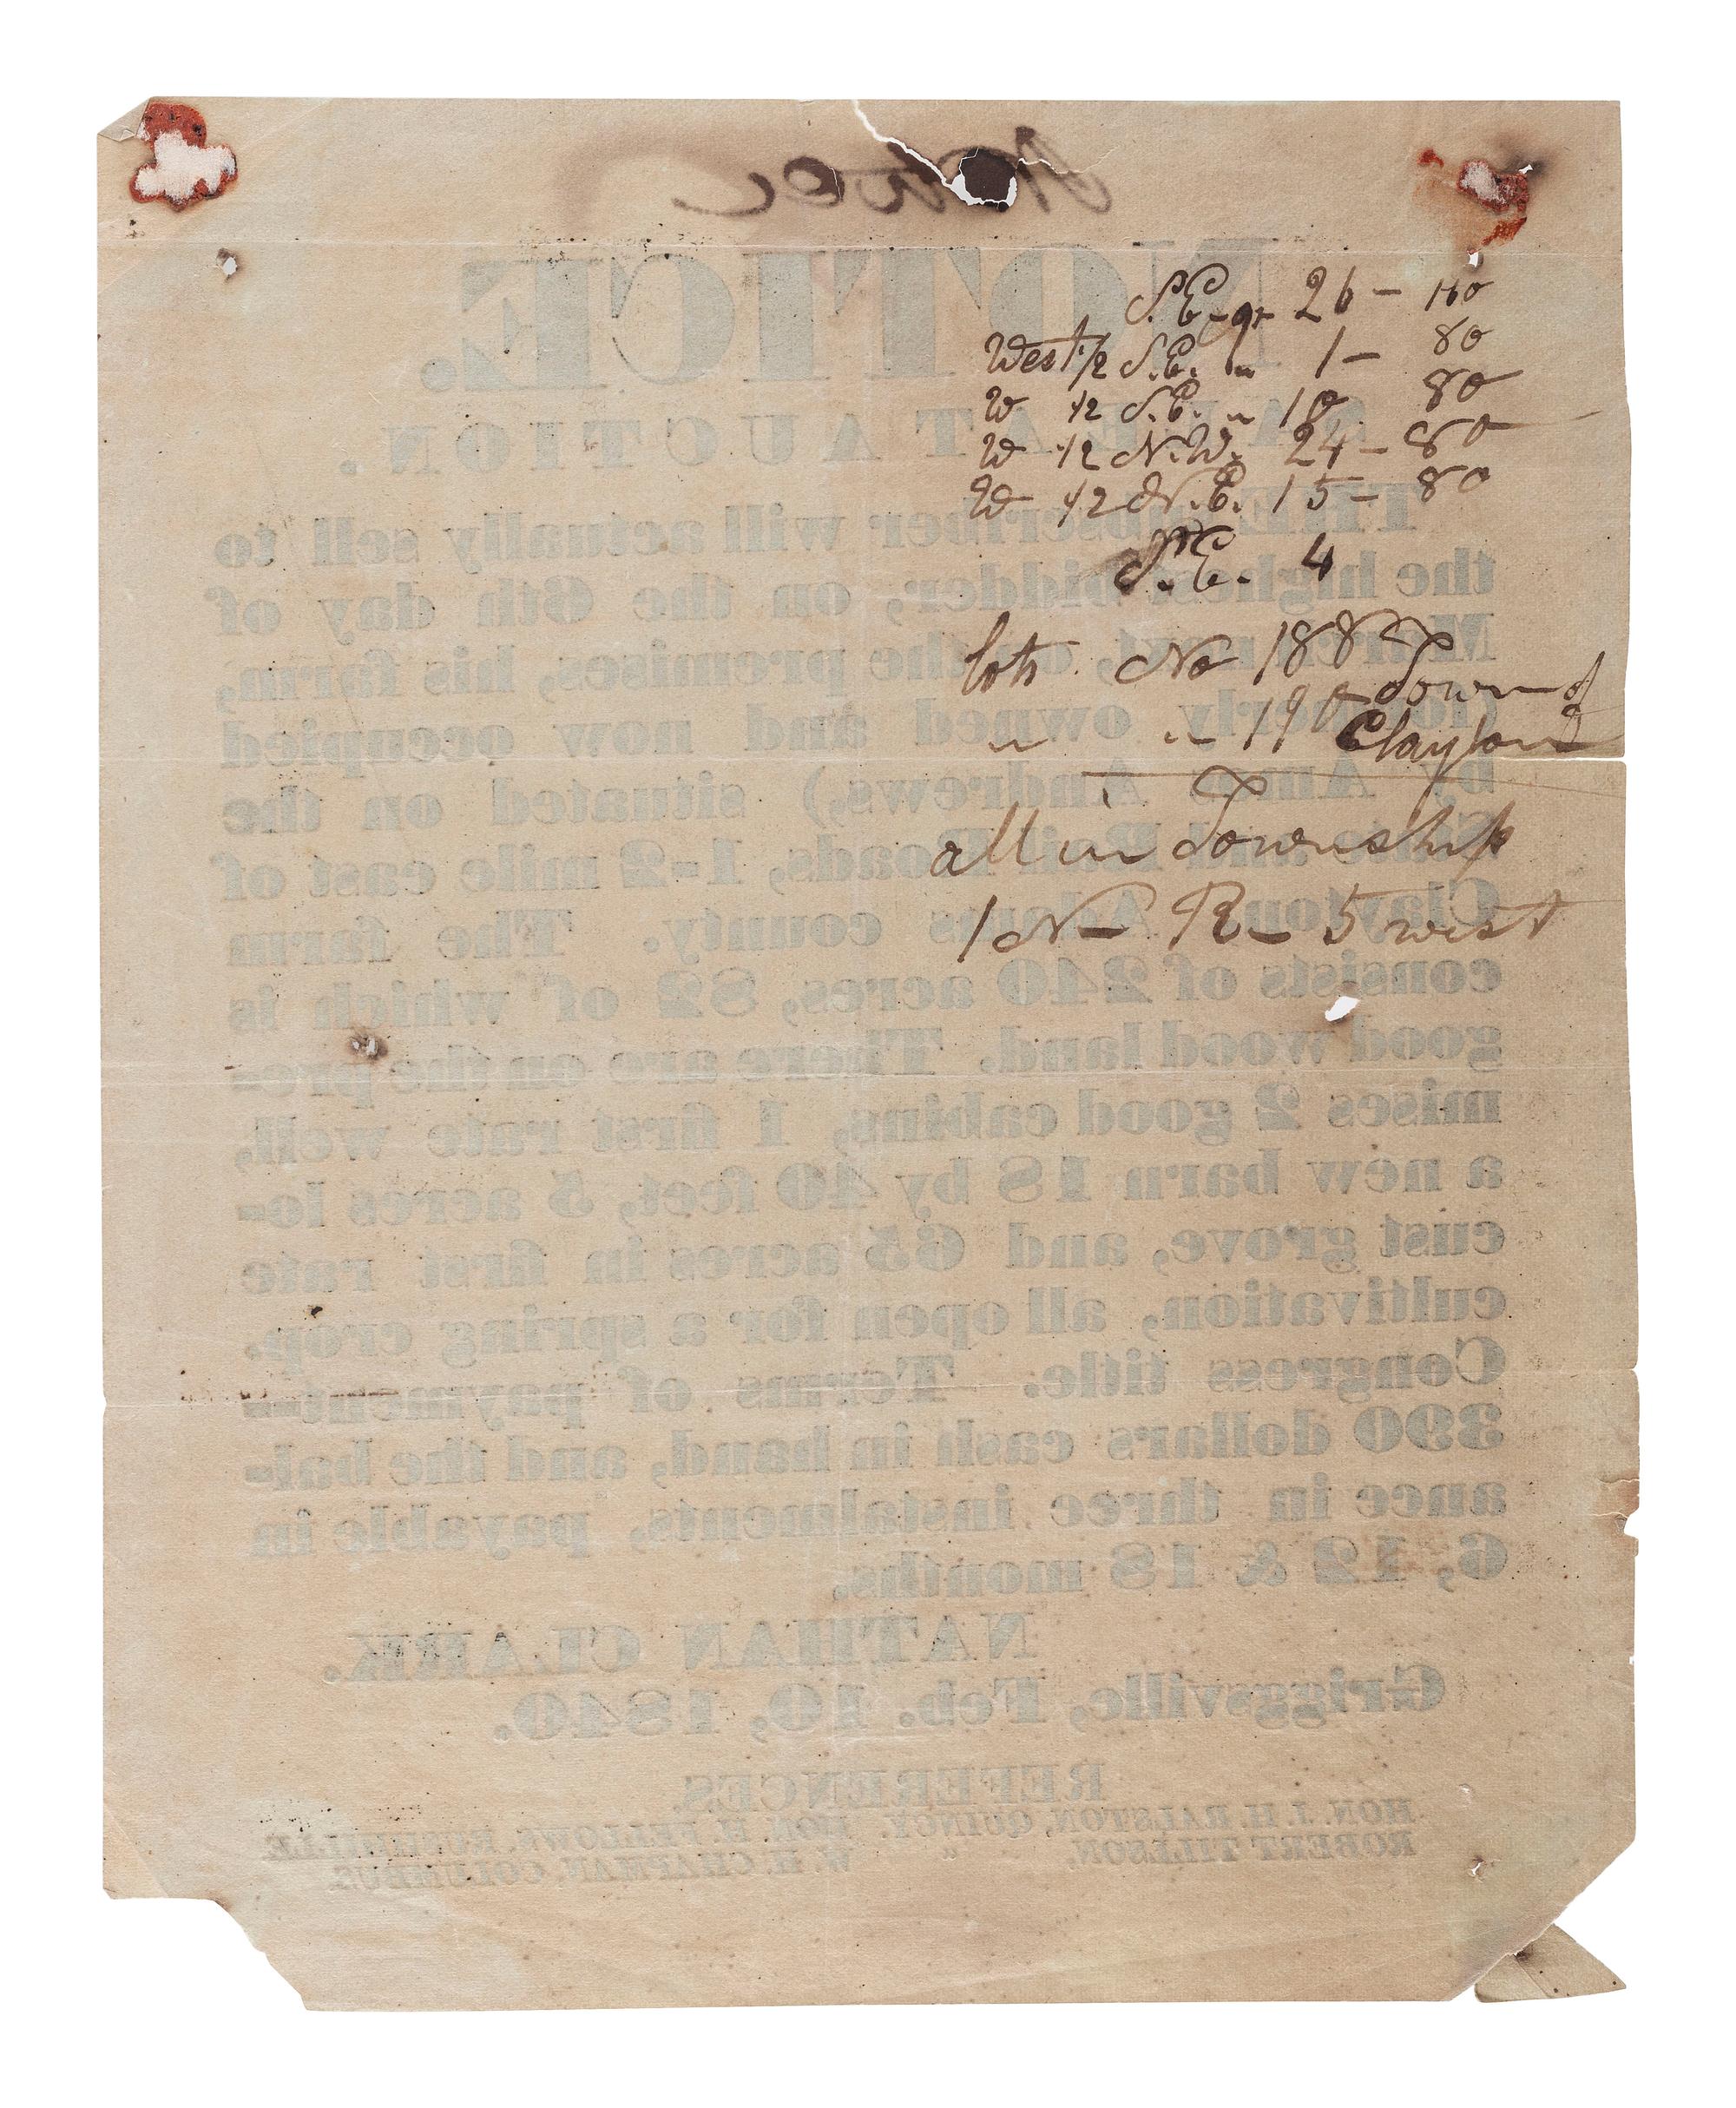 Notice
NOTICE.
SALE AT AUCTION.
THE subscriber will actually sell to
the highest bidder, on the 6th day of
March next, on the premises, his farm,
(formerly owned and now occupied
by Amos Andrews,) situated on the
State and Rail Roads, 1-2 mile east of
Clayton, Adams county. The farm
consists of 240 acres, 82 of which is
good wood land. There are on the pre-
mises 2 good cabins, 1 first rate well,
a new barn 18 by 40 feet, 5 acres lo-
cust grove, and 65 acres in first rate
cultivation, all open for a spring crop.
Congress title. Terms of payment--
390 dollars cash in hand, and the bal-
ance in three instalments, payable in
6, 12 & 18 months.
NATHAN CLARK.
Griggsville, Feb. 10, 1840.
REFERENCES.
HON. J. H. RALSTON, QUINCY. HON. H. FELLOWS, RUSHVILLE.
ROBERT TILLSON, " W. H. CHAPMAN, COLUMBUS.
S.E. qr 26 - 160
West 1/2 S.E. " 1 - 80
W 1/2 S.E. " 10 80
W 1/2 N.W. 24 - 80
W 1/2 N.E. 15 - 80
S.E. 4
lots No 188 Town of
" " 190 Clayton
all in Township
1 N - R - 5 west